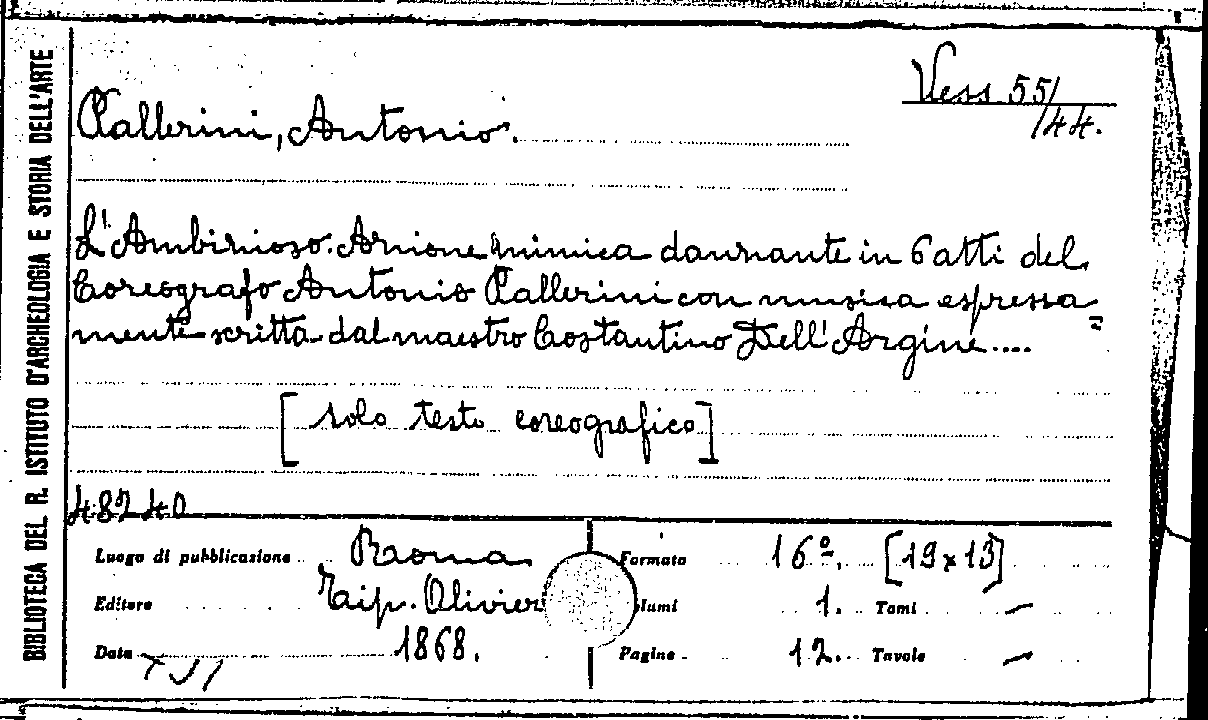 BIBLIOTECA DEL R. ISTITUTO D'ARCHEOLOGIA E STORIA DELL'ARTE
Vess 55/
/44.
Pallerini, Antonio.
L'Ambizioso. Azione mimica danzante in 6 atti del
Coreografo Antonio Pallerini con musica espressa=
mente scritta dal maestro Costantino Dell'Argine....
[solo testo coreografico]
48240
Luogo di pubblicazione Roma Formato 16º. [19x13]
Editore Tip. Olivier 1. Tomi —
Data 1868. Pagine 12. Tavole —